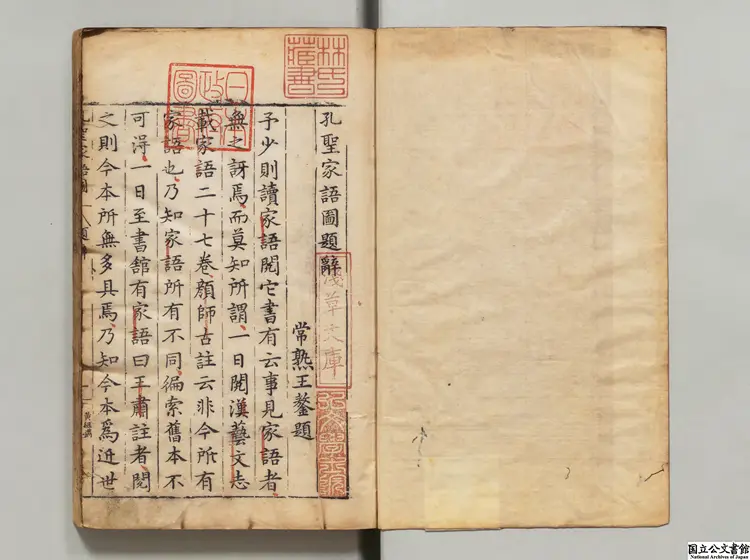 林氏藏書
日本政府圖書
孔聖家語圖題辭
淺草文庫
弘文學士院
常熟王鏊題
予少則讀家語閱它書有云事見家語者
無之訝焉而莫知所謂一日閱漢藝文志
載家語二十七卷顏師古註云非今所有
家語也乃知家語所有不同徧索舊本不
可淂一日至書舘有家語曰王肅註者閱
之則今本所無多具焉乃知今本爲近世
国立公文書館
National Archives of Japan